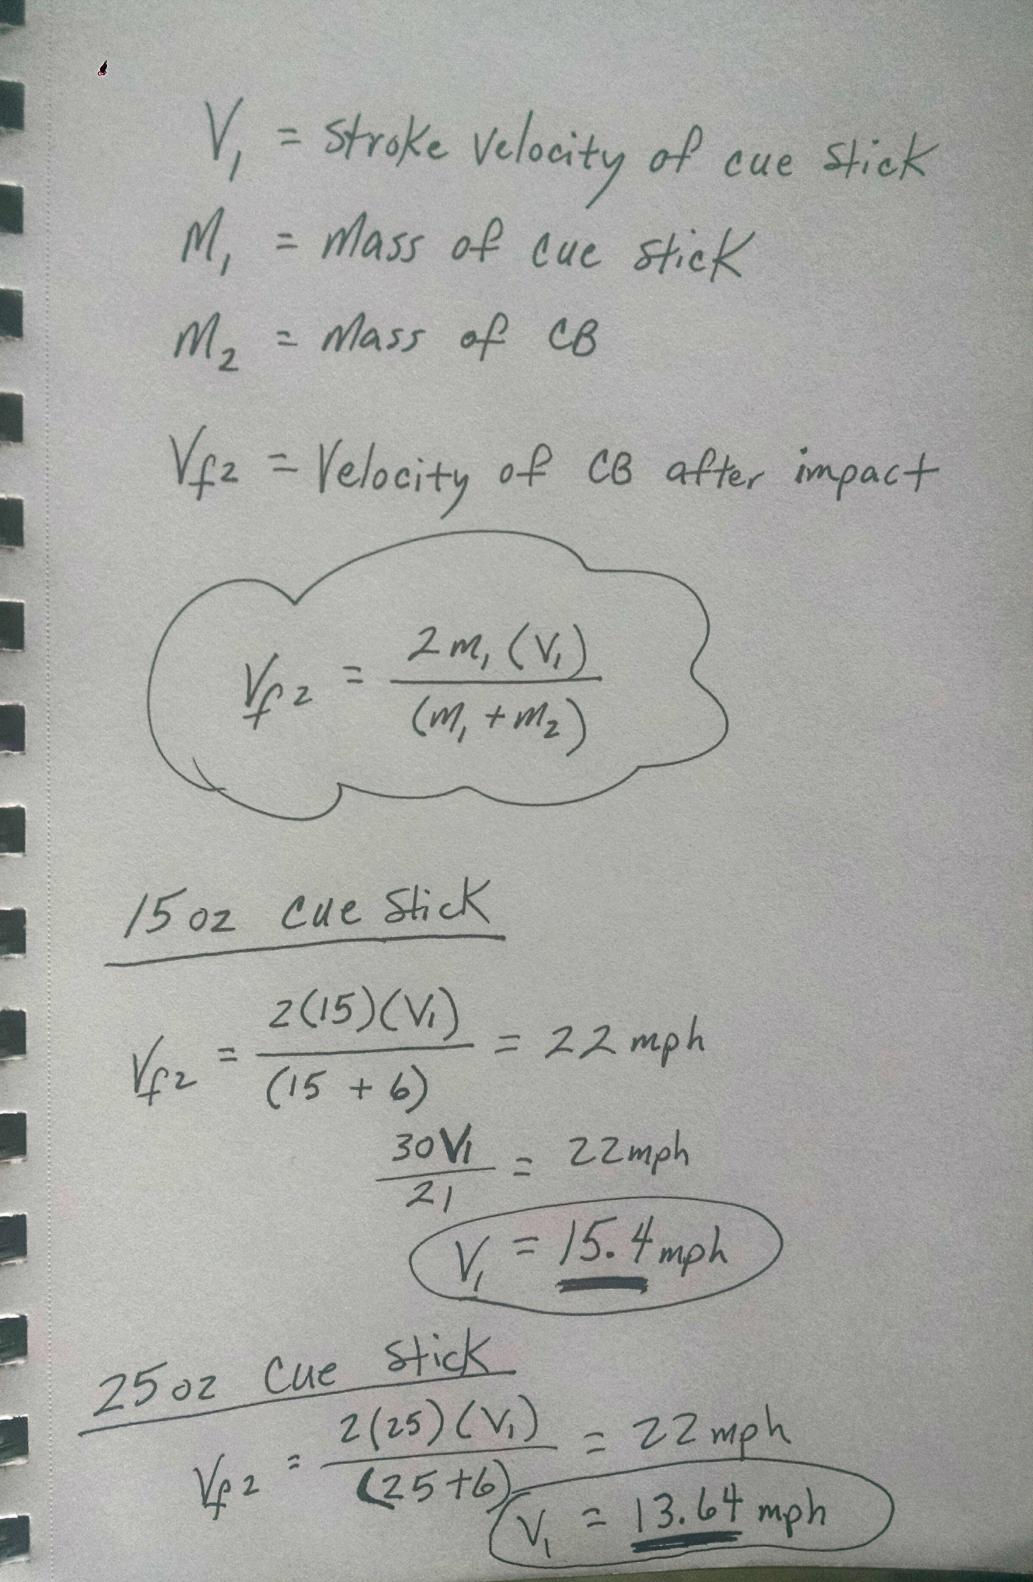 V₁ = Stroke Velocity of cue stick
M₁ = Mass of cue stick
M₂ = Mass of CB
Vf2 = Velocity of CB after impact
Vf2 = 2m₁(V₁) / (m₁ + m₂)
15 oz Cue Stick
Vf2 = 2(15)(V₁) / (15 + 6) = 22 mph
30V₁ / 21 = 22mph
V₁ = 15.4 mph
25 oz Cue Stick
Vf2 = 2(25)(V₁) / (25+6) = 22 mph
V₁ = 13.64 mph